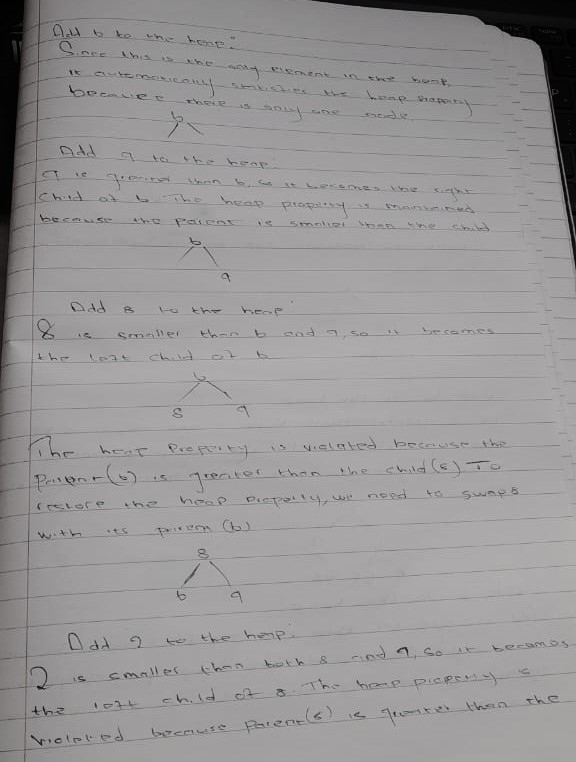 Add 6 to the heap:
Since this is the only element in the heap,
it automatically satisfies the heap property
because there is only one node.
6
Add 9 to the heap:
9 is greater than 6, so it becomes the right
child of 6. The heap property is maintained
because the parent is smaller than the child
6
9
Add 8 to the heap
8 is smaller than 6 and 9, so it becomes
the left child of 6
6
8 9
The heap Property is violated because the
Parent (6) is greater than the child (8) To
restore the heap property, we need to swap 8
with its parent (6)
8
6 9
Add 2 to the heap:
2 is smaller than both 8 and 9, so it becomes
the left child of 8. The heap property is
violated because Parent(8) is greater than the